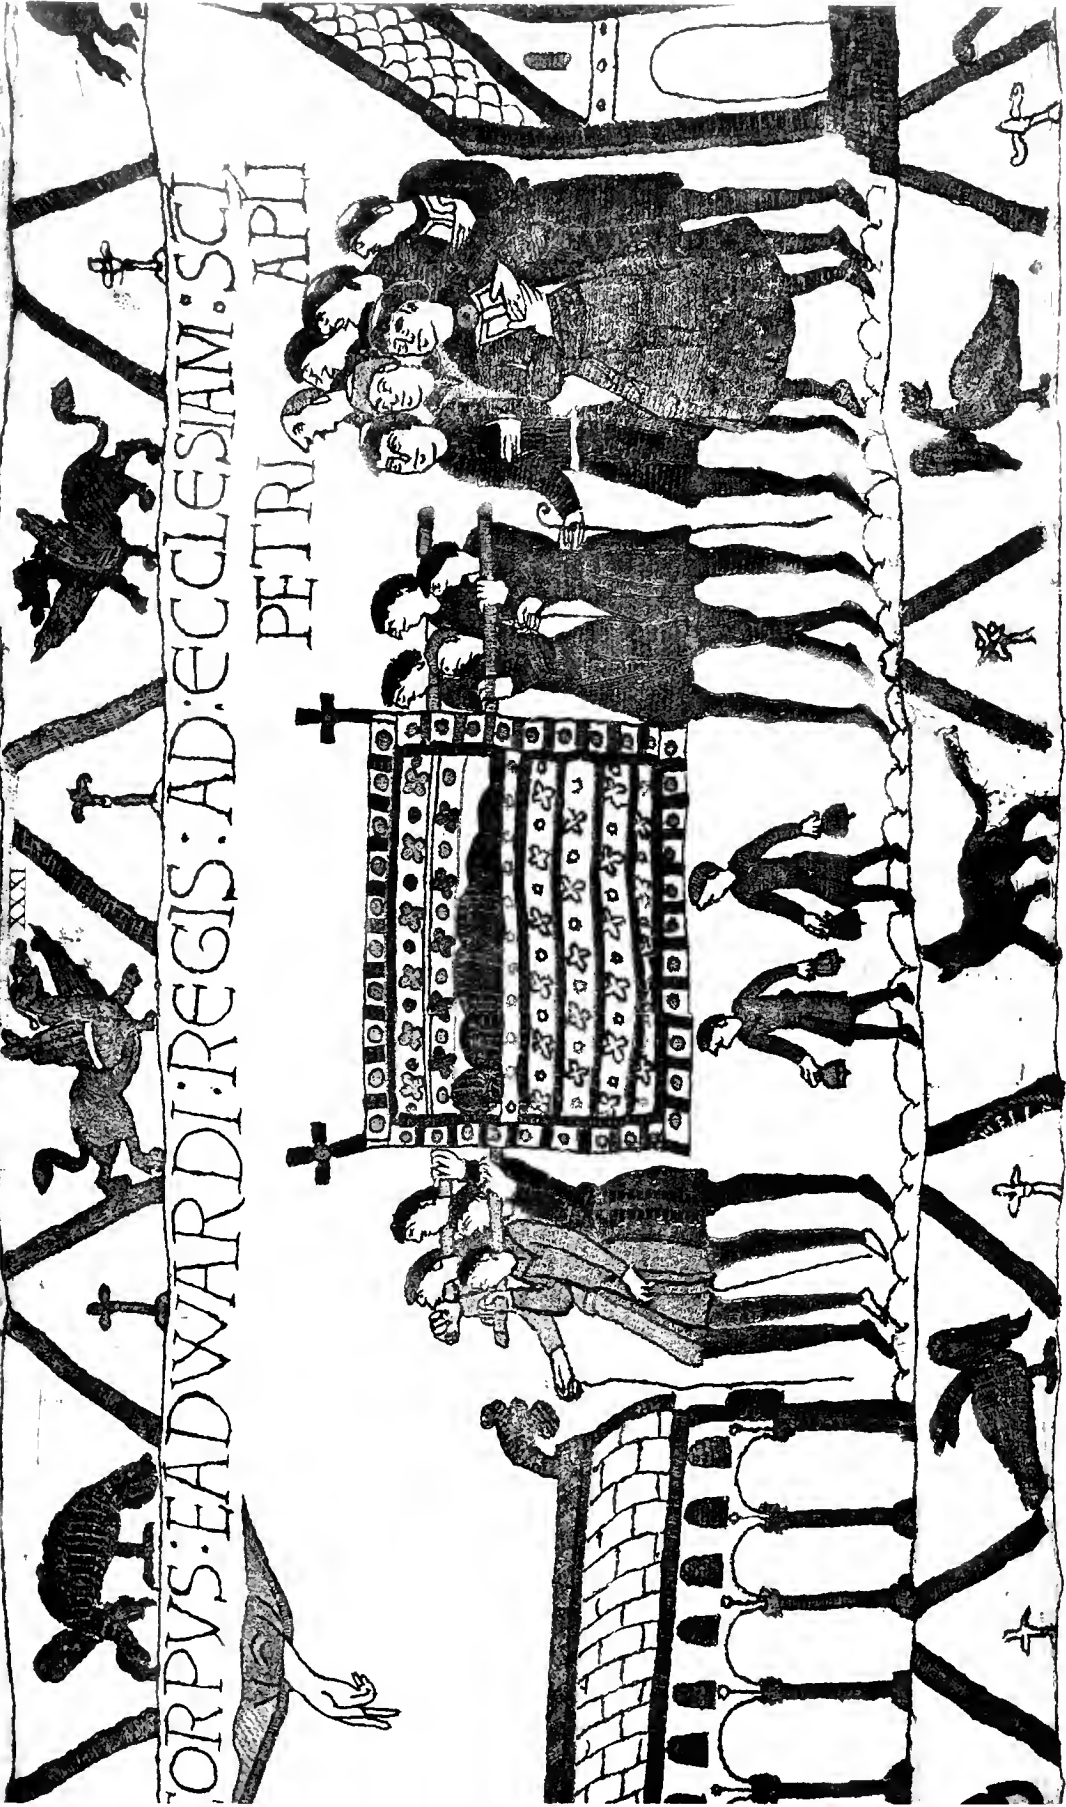 XXXI
CORPVS:EADWARDI:REGIS:AD:ECCLESIAM:SCI
PETRI APLI